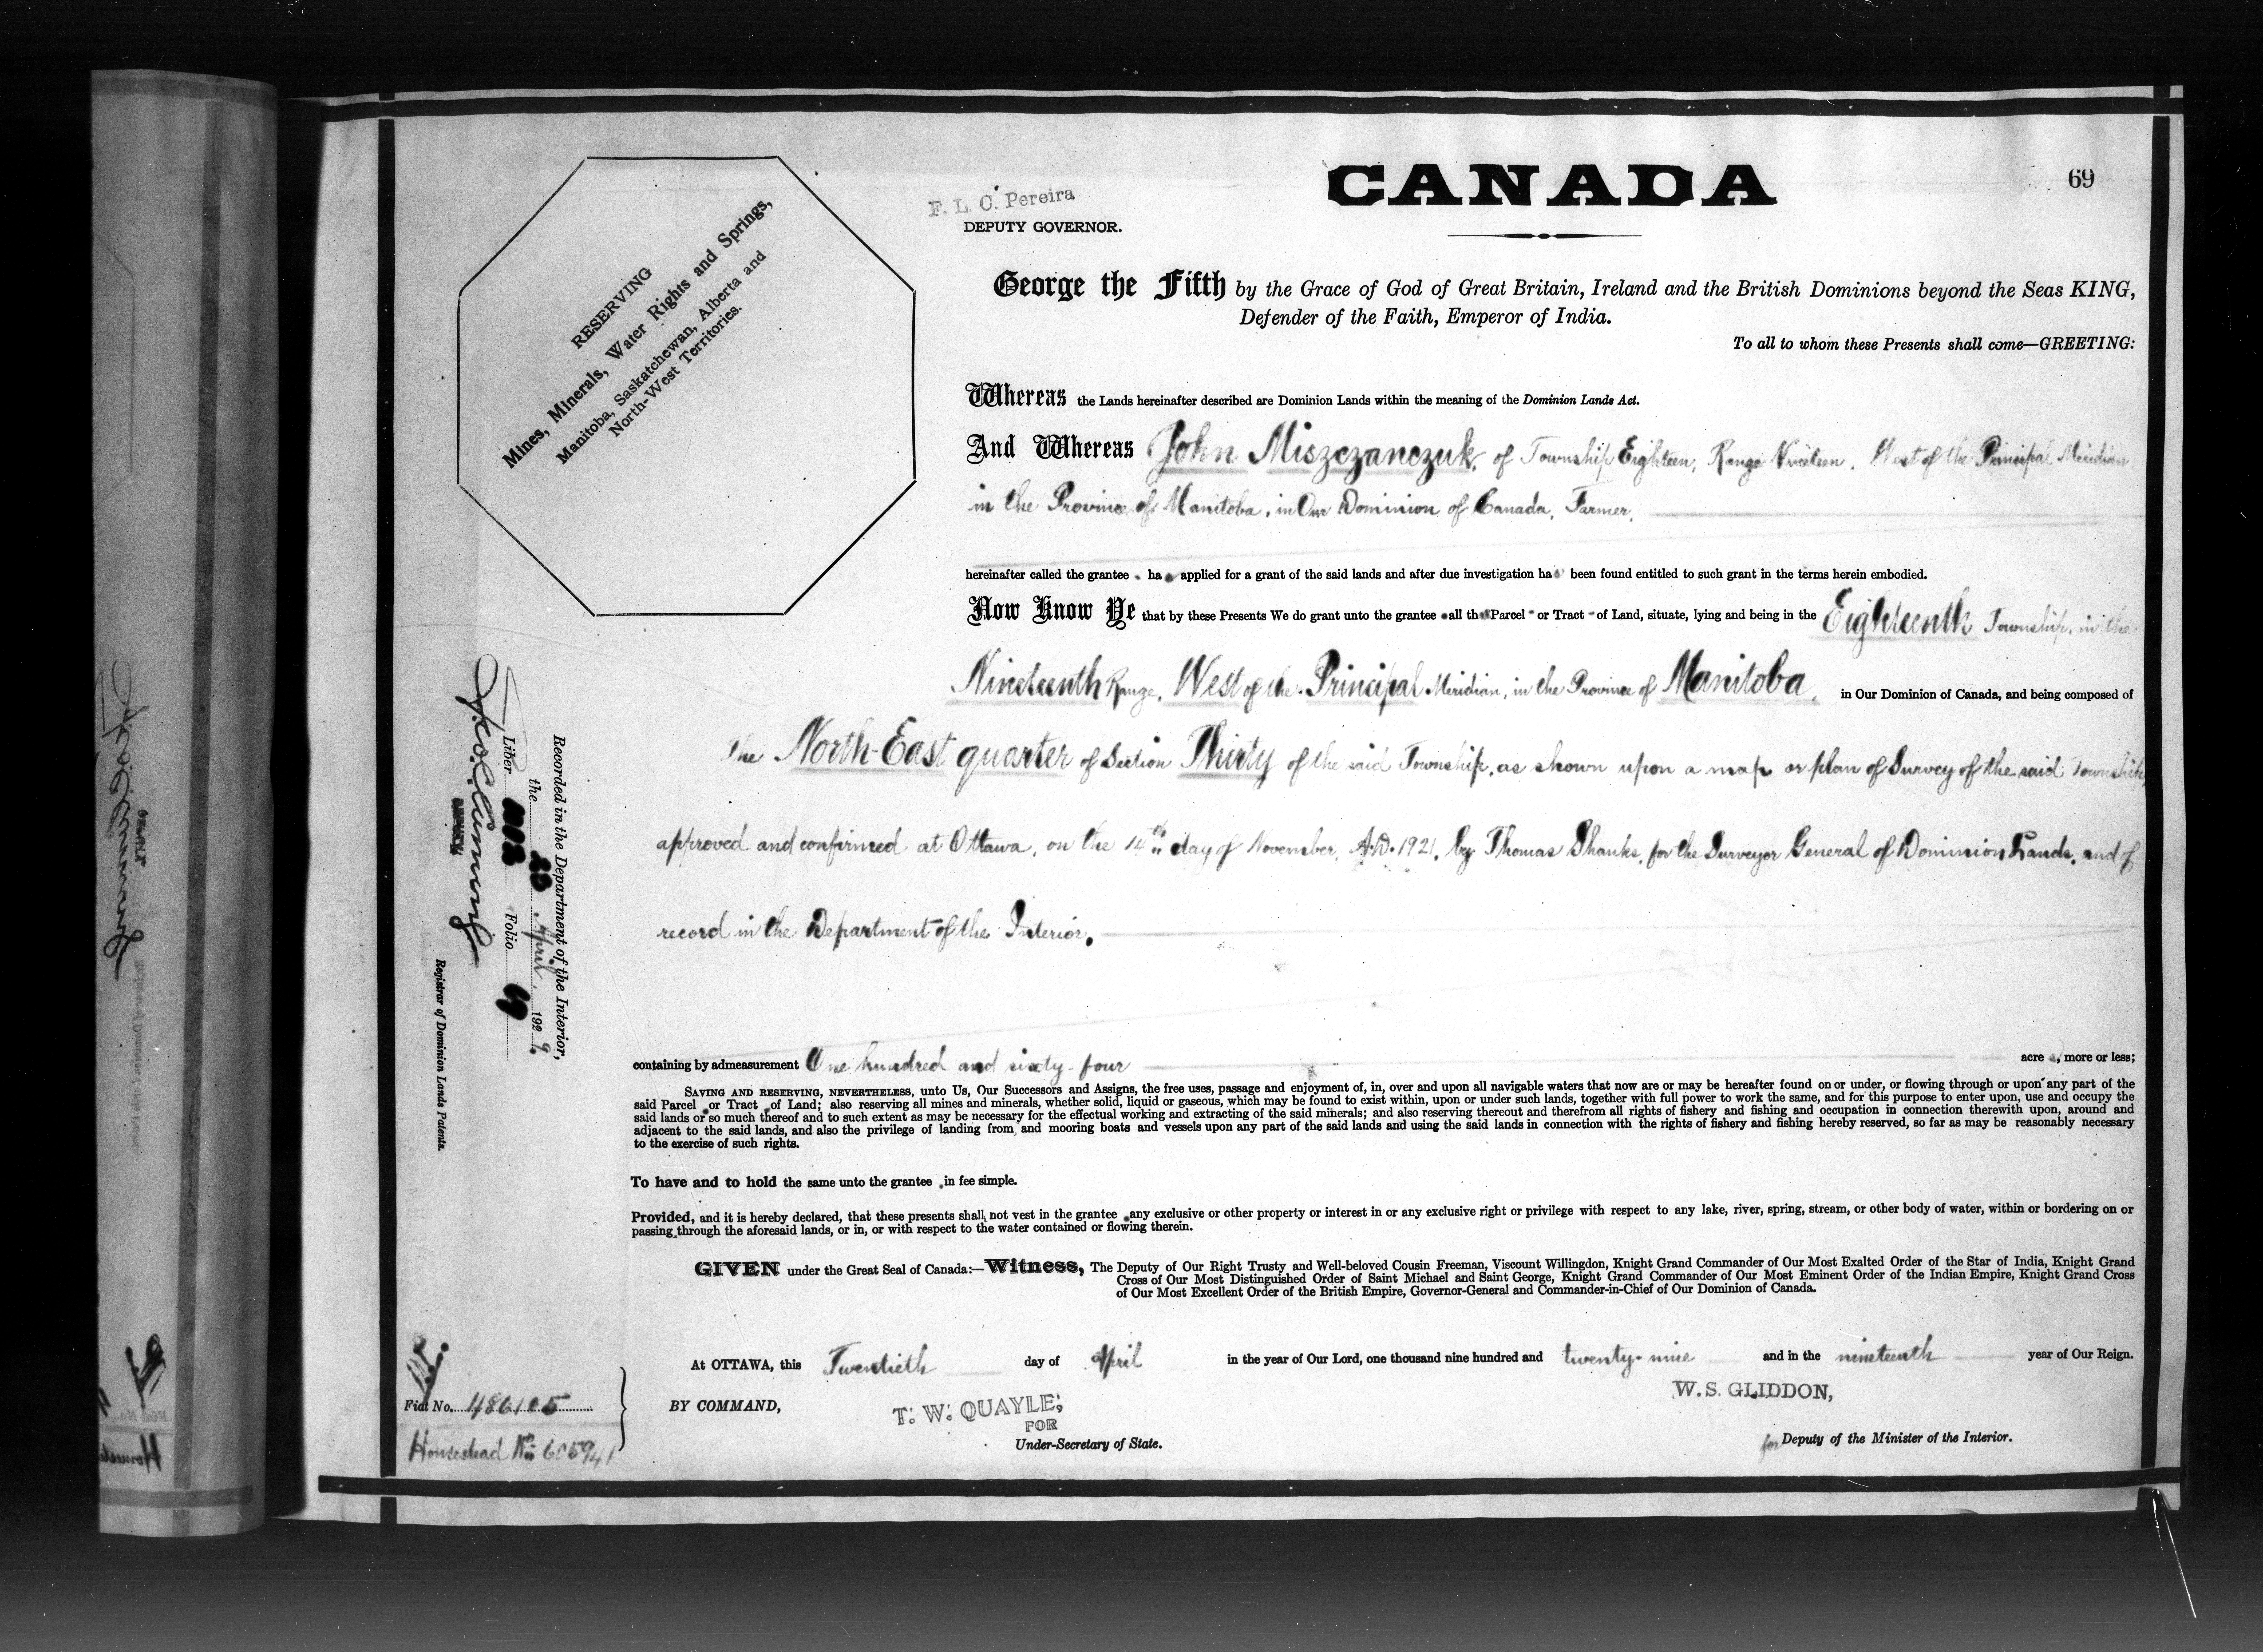 CANADA
69
F. L. C. Pereira
DEPUTY GOVERNOR.
RESERVING
Mines, Minerals, Water Rights and Springs,
Manitoba, Saskatchewan, Alberta and
North-West Territories.
George the Fifth by the Grace of God of Great Britain, Ireland and the British Dominions beyond the Seas KING,
Defender of the Faith, Emperor of India.
To all to whom these Presents shall come—GREETING:
Whereas the Lands hereinafter described are Dominion Lands within the meaning of the Dominion Lands Act.
And Whereas John Miszczanczuk, of Township Eighteen, Range Nineteen, West of the Principal Meridian
in the Province of Manitoba, in Our Dominion of Canada, Farmer,
hereinafter called the grantee ha applied for a grant of the said lands and after due investigation ha been found entitled to such grant in the terms herein embodied.
Now Know Ye that by these Presents We do grant unto the grantee all th Parcel or Tract of Land, situate, lying and being in the Eighteenth Township, in the
Nineteenth Range, West of the Principal Meridian, in the Province of Manitoba, in Our Dominion of Canada, and being composed of
The North-East quarter of Section Thirty of the said Township, as shown upon a map or plan of Survey of the said Township,
approved and confirmed at Ottawa, on the 14th day of November, A.D. 1921, by Thomas Shanks, for the Surveyor General of Dominion Lands, and of
record in the Department of the Interior.
containing by admeasurement One hundred and sixty-four acre , more or less;
SAVING AND RESERVING, NEVERTHELESS, unto Us, Our Successors and Assigns, the free uses, passage and enjoyment of, in, over and upon all navigable waters that now are or may be hereafter found on or under, or flowing through or upon any part of the
said Parcel or Tract of Land; also reserving all mines and minerals, whether solid, liquid or gaseous, which may be found to exist within, upon or under such lands, together with full power to work the same, and for this purpose to enter upon, use and occupy the
said lands or so much thereof and to such extent as may be necessary for the effectual working and extracting of the said minerals; and also reserving thereout and therefrom all rights of fishery and fishing and occupation in connection therewith upon, around and
adjacent to the said lands, and also the privilege of landing from and mooring boats and vessels upon any part of the said lands and using the said lands in connection with the rights of fishery and fishing hereby reserved, so far as may be reasonably necessary
to the exercise of such rights.
To have and to hold the same unto the grantee in fee simple.
Provided, and it is hereby declared, that these presents shall not vest in the grantee any exclusive or other property or interest in or any exclusive right or privilege with respect to any lake, river, spring, stream, or other body of water, within or bordering on or
passing through the aforesaid lands, or in, or with respect to the water contained or flowing therein.
GIVEN under the Great Seal of Canada:—Witness, The Deputy of Our Right Trusty and Well-beloved Cousin Freeman, Viscount Willingdon, Knight Grand Commander of Our Most Exalted Order of the Star of India, Knight Grand
Cross of Our Most Distinguished Order of Saint Michael and Saint George, Knight Grand Commander of Our Most Eminent Order of the Indian Empire, Knight Grand Cross
of Our Most Excellent Order of the British Empire, Governor-General and Commander-in-Chief of Our Dominion of Canada.
At OTTAWA, this Twentieth day of April in the year of Our Lord, one thousand nine hundred and twenty-nine and in the nineteenth year of Our Reign.
BY COMMAND,
T. W. QUAYLE,
FOR
Under-Secretary of State.
W. S. GLIDDON,
for Deputy of the Minister of the Interior.
Recorded in the Department of the Interior,
the 23 April 1929
Liber Folio 69
Registrar of Dominion Lands Patents.
Fiat No. 486105
Homestead No. 605941